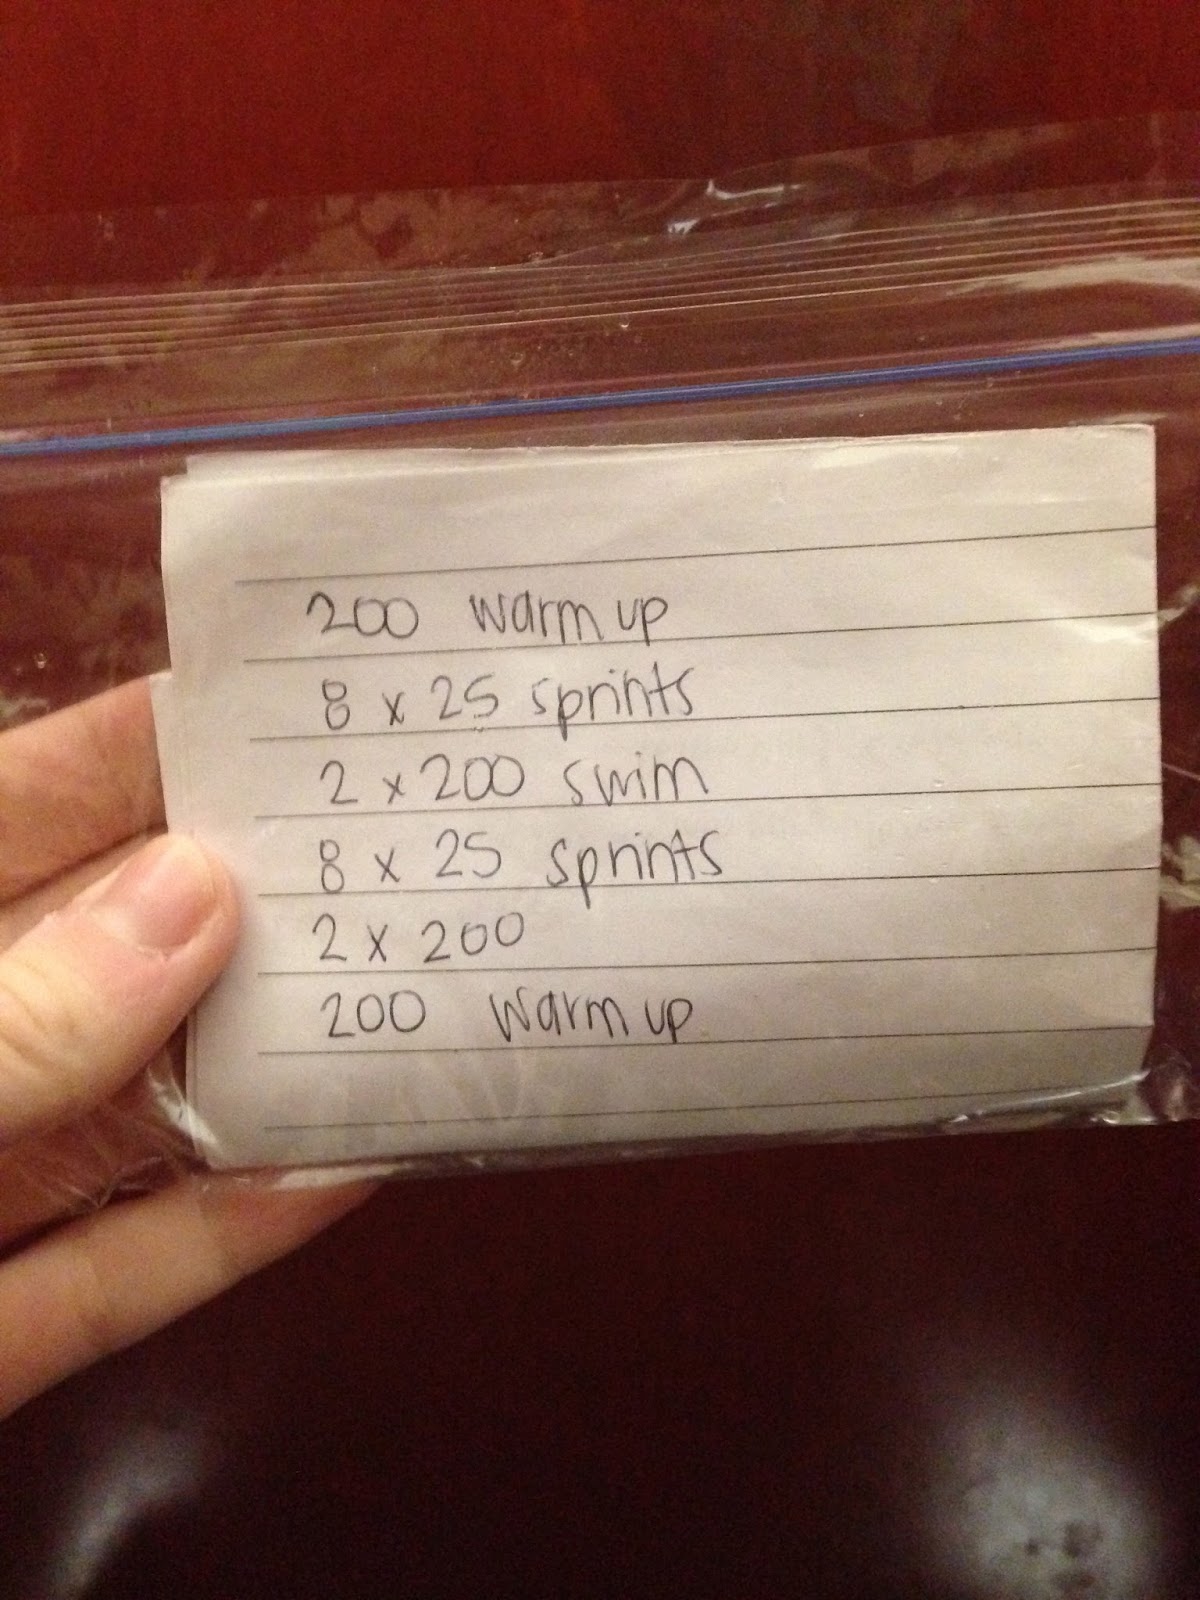 200 warm up
8 x 25 sprints
2 x 200 swim
8 x 25 sprints
2 x 200
200 warm up